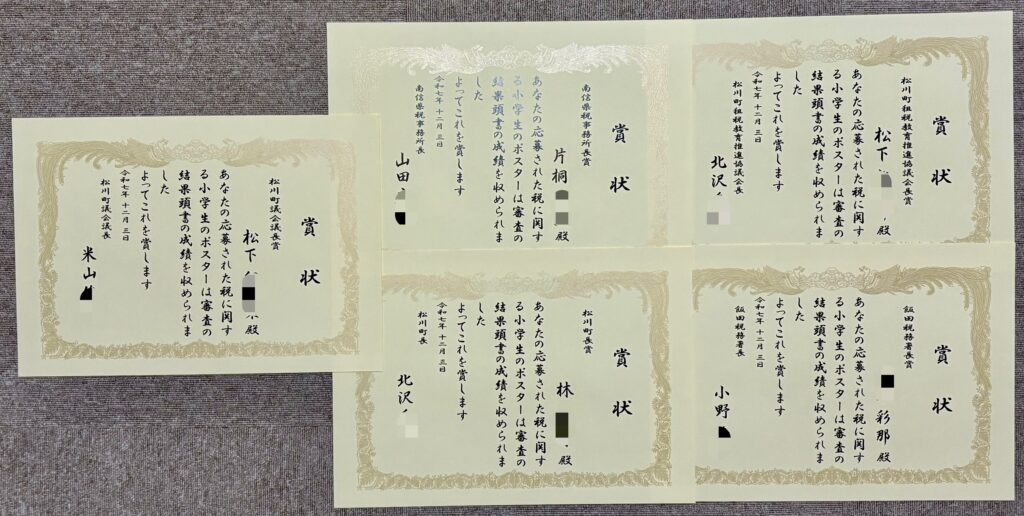 賞状
松川町議会議長賞
松下 殿
あなたの応募された税に関す
る小学生のポスターは審査の
結果頭書の成績を収められま
した
よってこれを賞します
令和七年十二月三日
松川町議会議長
米山
賞状
南信県税事務所長賞
片桐 殿
あなたの応募された税に関す
る小学生のポスターは審査の
結果頭書の成績を収められま
した
よってこれを賞します
令和七年十二月三日
南信県税事務所長
山田
賞状
松川町租税教育推進協議会長賞
松下 殿
あなたの応募された税に関す
る小学生のポスターは審査の
結果頭書の成績を収められま
した
よってこれを賞します
令和七年十二月三日
松川町租税教育推進協議会長
北沢
賞状
松川町長賞
林 殿
あなたの応募された税に関す
る小学生のポスターは審査の
結果頭書の成績を収められま
した
よってこれを賞します
令和七年十二月三日
松川町長
北沢
賞状
飯田税務署長賞
彩那 殿
あなたの応募された税に関す
る小学生のポスターは審査の
結果頭書の成績を収められま
した
よってこれを賞します
令和七年十二月三日
飯田税務署長
小野